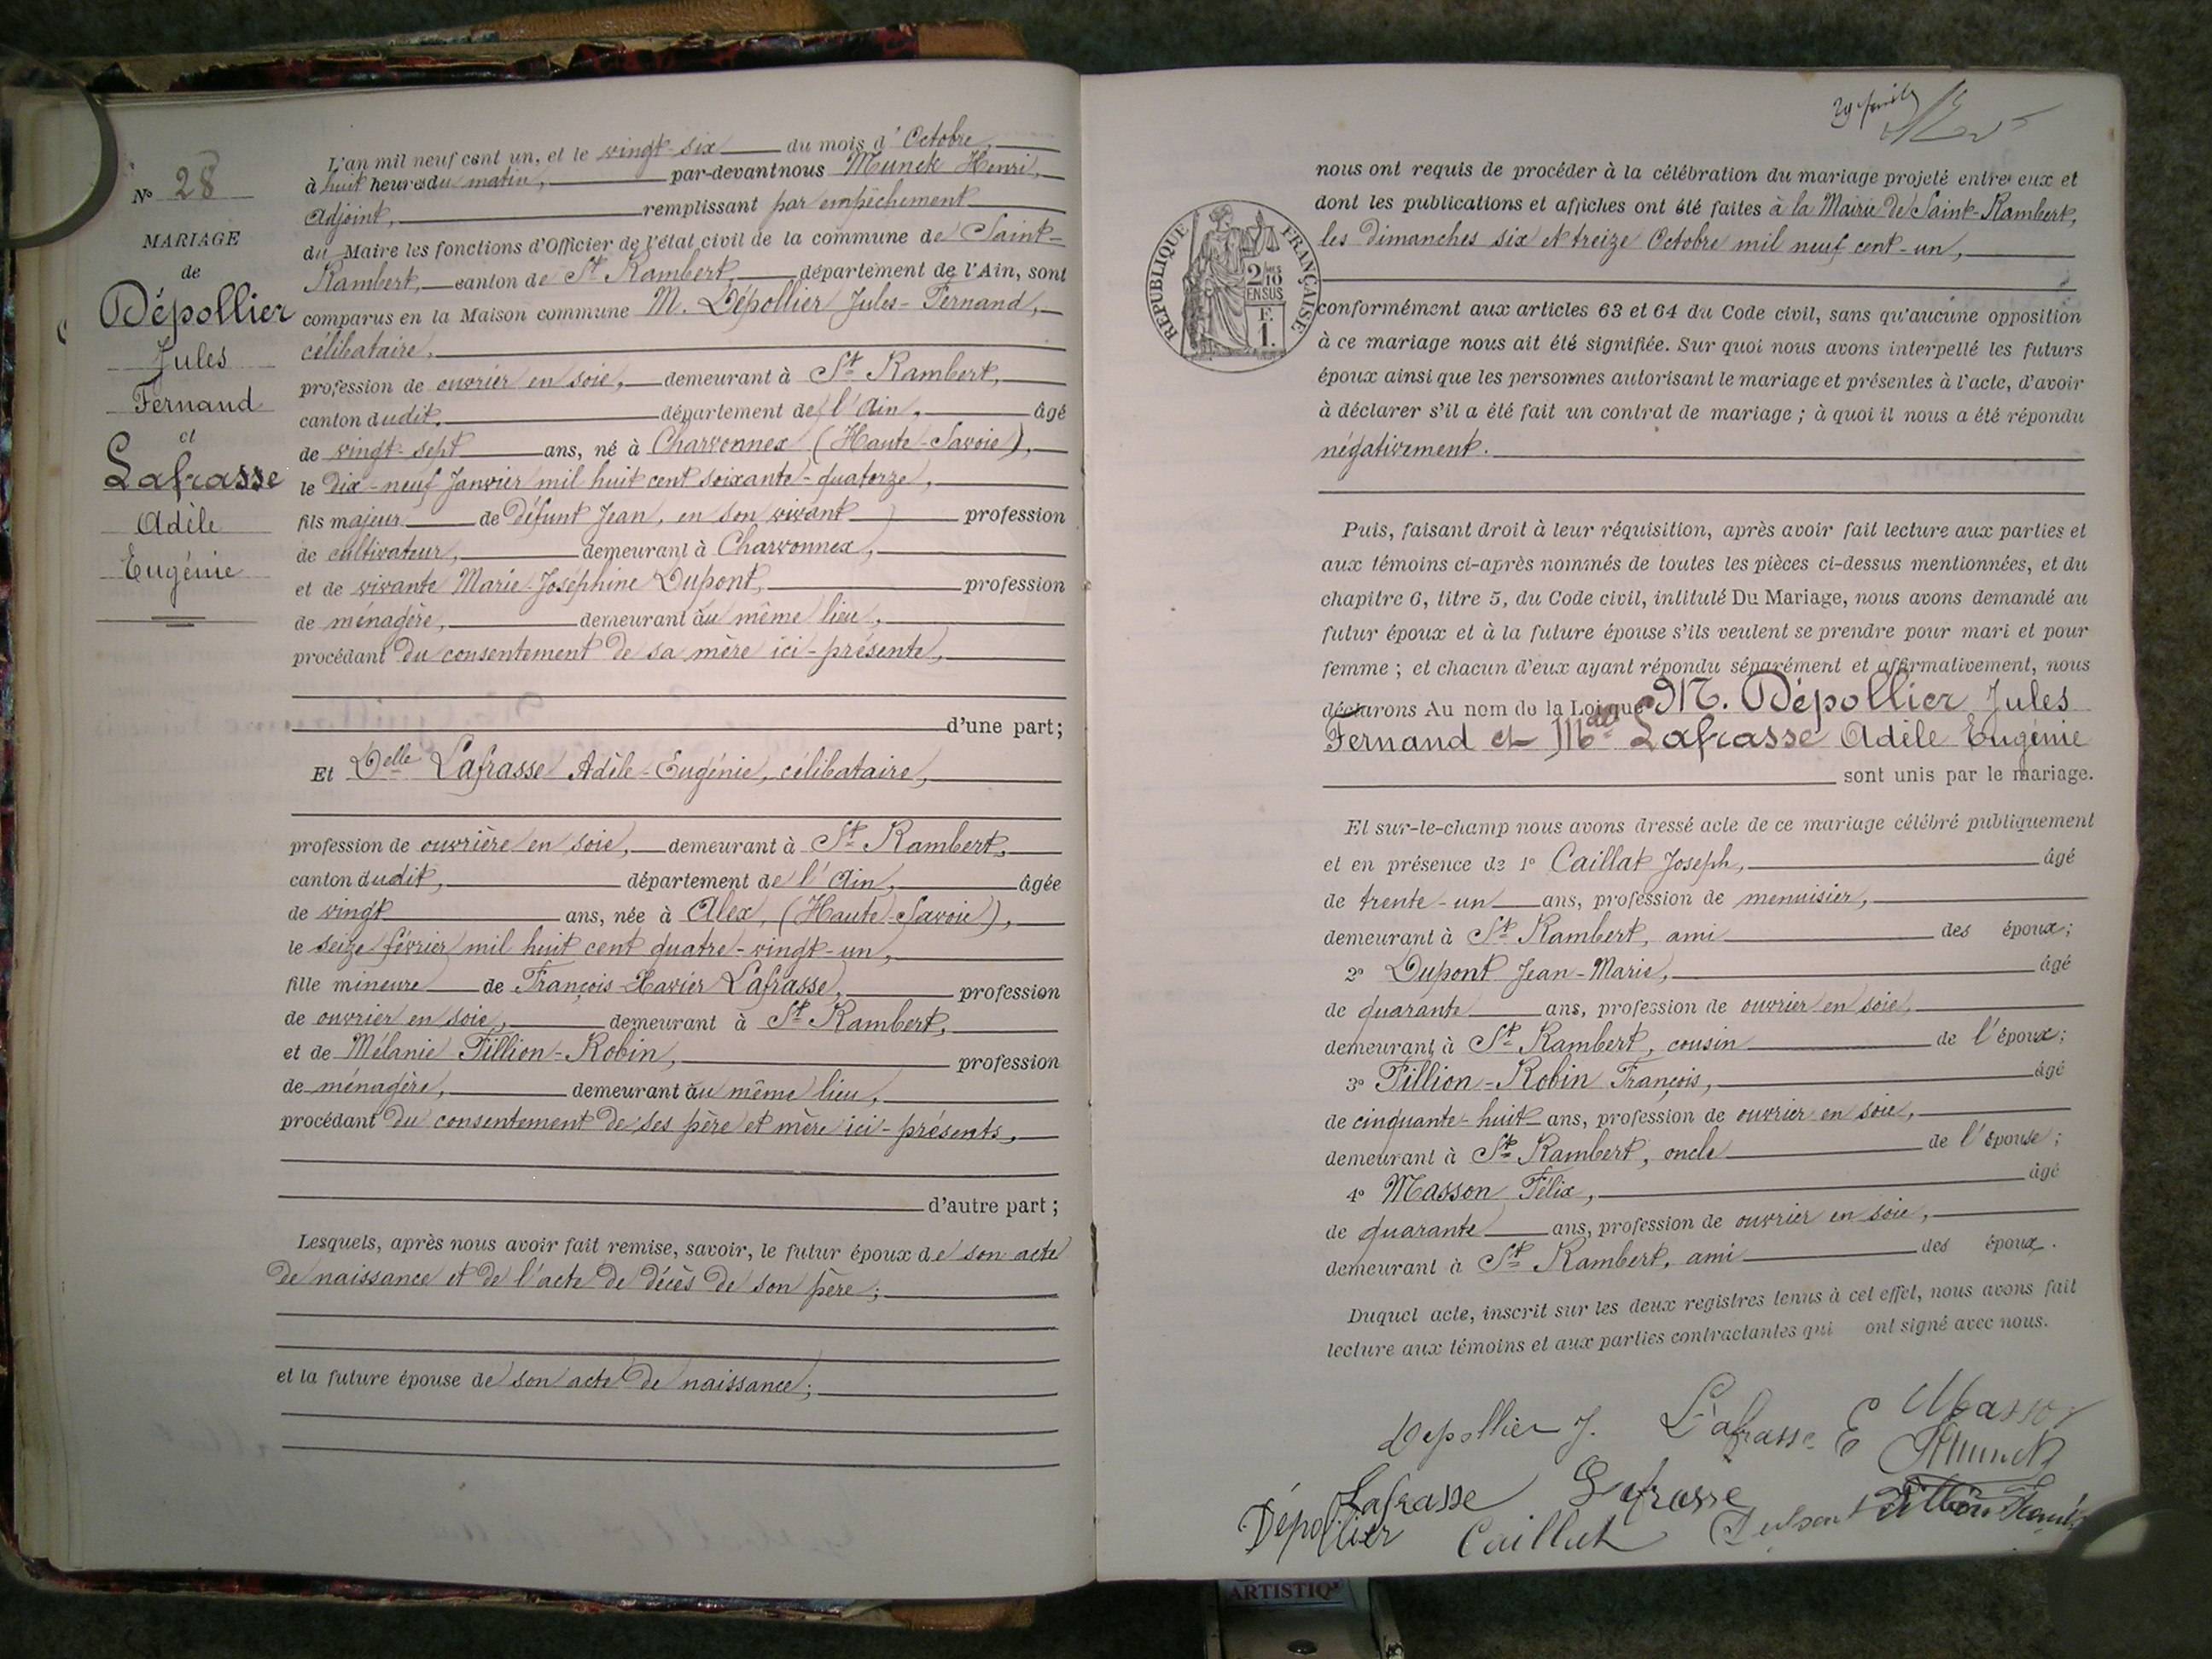 N° 28
MARIAGE
de
Dépollier
Jules
Fernand
et
Lafrasse
Adèle
Eugénie
L'an mil neuf cent un, et le vingt-six du mois d'Octobre,
à huit heures du matin, par-devant nous Munck Henri,
Adjoint, remplissant par empêchement
du Maire les fonctions d'Officier de l'état civil de la commune de Saint-
Rambert, canton de St Rambert, département de l'Ain, sont
comparus en la Maison commune M. Dépollier Jules-Fernand,
célibataire,
profession de ouvrier en soie, demeurant à St Rambert,
canton dudit, département de l'Ain, âgé
de vingt-sept ans, né à Charvonnex (Haute-Savoie),
le dix-neuf Janvier mil huit cent soixante-quatorze,
fils majeur de défunt Jean, en son vivant profession
de cultivateur, demeurant à Charvonnex,
et de vivante Marie-Joséphine Dupont, profession
de ménagère, demeurant au même lieu,
procédant du consentement de sa mère ici-présente,
d'une part;
Et Delle Lafrasse Adèle-Eugénie, célibataire,
profession de ouvrière en soie, demeurant à St Rambert,
canton dudit, département de l'Ain, âgée
de vingt ans, née à Alex, (Haute-Savoie),
le seize février mil huit cent quatre-vingt-un,
fille mineure de François-Xavier Lafrasse, profession
de ouvrier en soie, demeurant à St Rambert,
et de Mélanie Fillion-Robin, profession
de ménagère, demeurant au même lieu,
procédant du consentement de ses père et mère ici-présents,
d'autre part;
Lesquels, après nous avoir fait remise, savoir, le futur époux de son acte
de naissance et de l'acte de décès de son père;
et la future épouse de son acte de naissance;
RÉPUBLIQUE FRANÇAISE
2/10
EN SUS
F.
1.
nous ont requis de procéder à la célébration du mariage projeté entre eux et
dont les publications et affiches ont été faites à la Mairie de Saint-Rambert,
les dimanches six et treize Octobre mil neuf cent-un,
conformément aux articles 63 et 64 du Code civil, sans qu'aucune opposition
à ce mariage nous ait été signifiée. Sur quoi nous avons interpellé les futurs
époux ainsi que les personnes autorisant le mariage et présentes à l'acte, d'avoir
à déclarer s'il a été fait un contrat de mariage; à quoi il nous a été répondu
négativement.
Puis, faisant droit à leur réquisition, après avoir fait lecture aux parties et
aux témoins ci-après nommés de toutes les pièces ci-dessus mentionnées, et du
chapitre 6, titre 5, du Code civil, intitulé Du Mariage, nous avons demandé au
futur époux et à la future épouse s'ils veulent se prendre pour mari et pour
femme; et chacun d'eux ayant répondu séparément et affirmativement, nous
déclarons Au nom de la Loi que M. Dépollier Jules
Fernand et Mdelle Lafrasse Adèle Eugénie
sont unis par le mariage.
Et sur-le-champ nous avons dressé acte de ce mariage célébré publiquement
et en présence de 1° Caillat Joseph, âgé
de trente-un ans, profession de menuisier,
demeurant à St Rambert, ami des époux;
2° Dupont Jean-Marie, âgé
de quarante ans, profession de ouvrier en soie,
demeurant à St Rambert, cousin de l'époux;
3° Fillion-Robin François, âgé
de cinquante-huit ans, profession de ouvrier en soie,
demeurant à St Rambert, oncle de l'épouse;
4° Masson Félix, âgé
de quarante ans, profession de ouvrier en soie,
demeurant à St Rambert, ami des époux.
Duquel acte, inscrit sur les deux registres tenus à cet effet, nous avons fait
lecture aux témoins et aux parties contractantes qui ont signé avec nous.
Depollier J. Lafrasse E Masson
HMunck
Lafrasse Lafrasse
Dépollier Caillat Dupont
ARTISTIQ